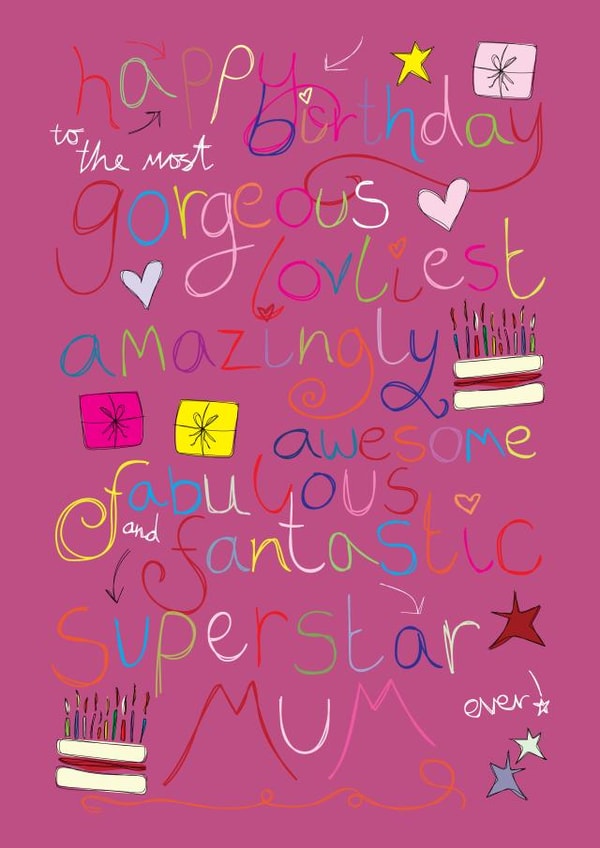 happy
birthday
to
the most
gorgeous
lovliest
amazingly
awesome
fabulous
and
fantastic
superstar
MUM
ever!